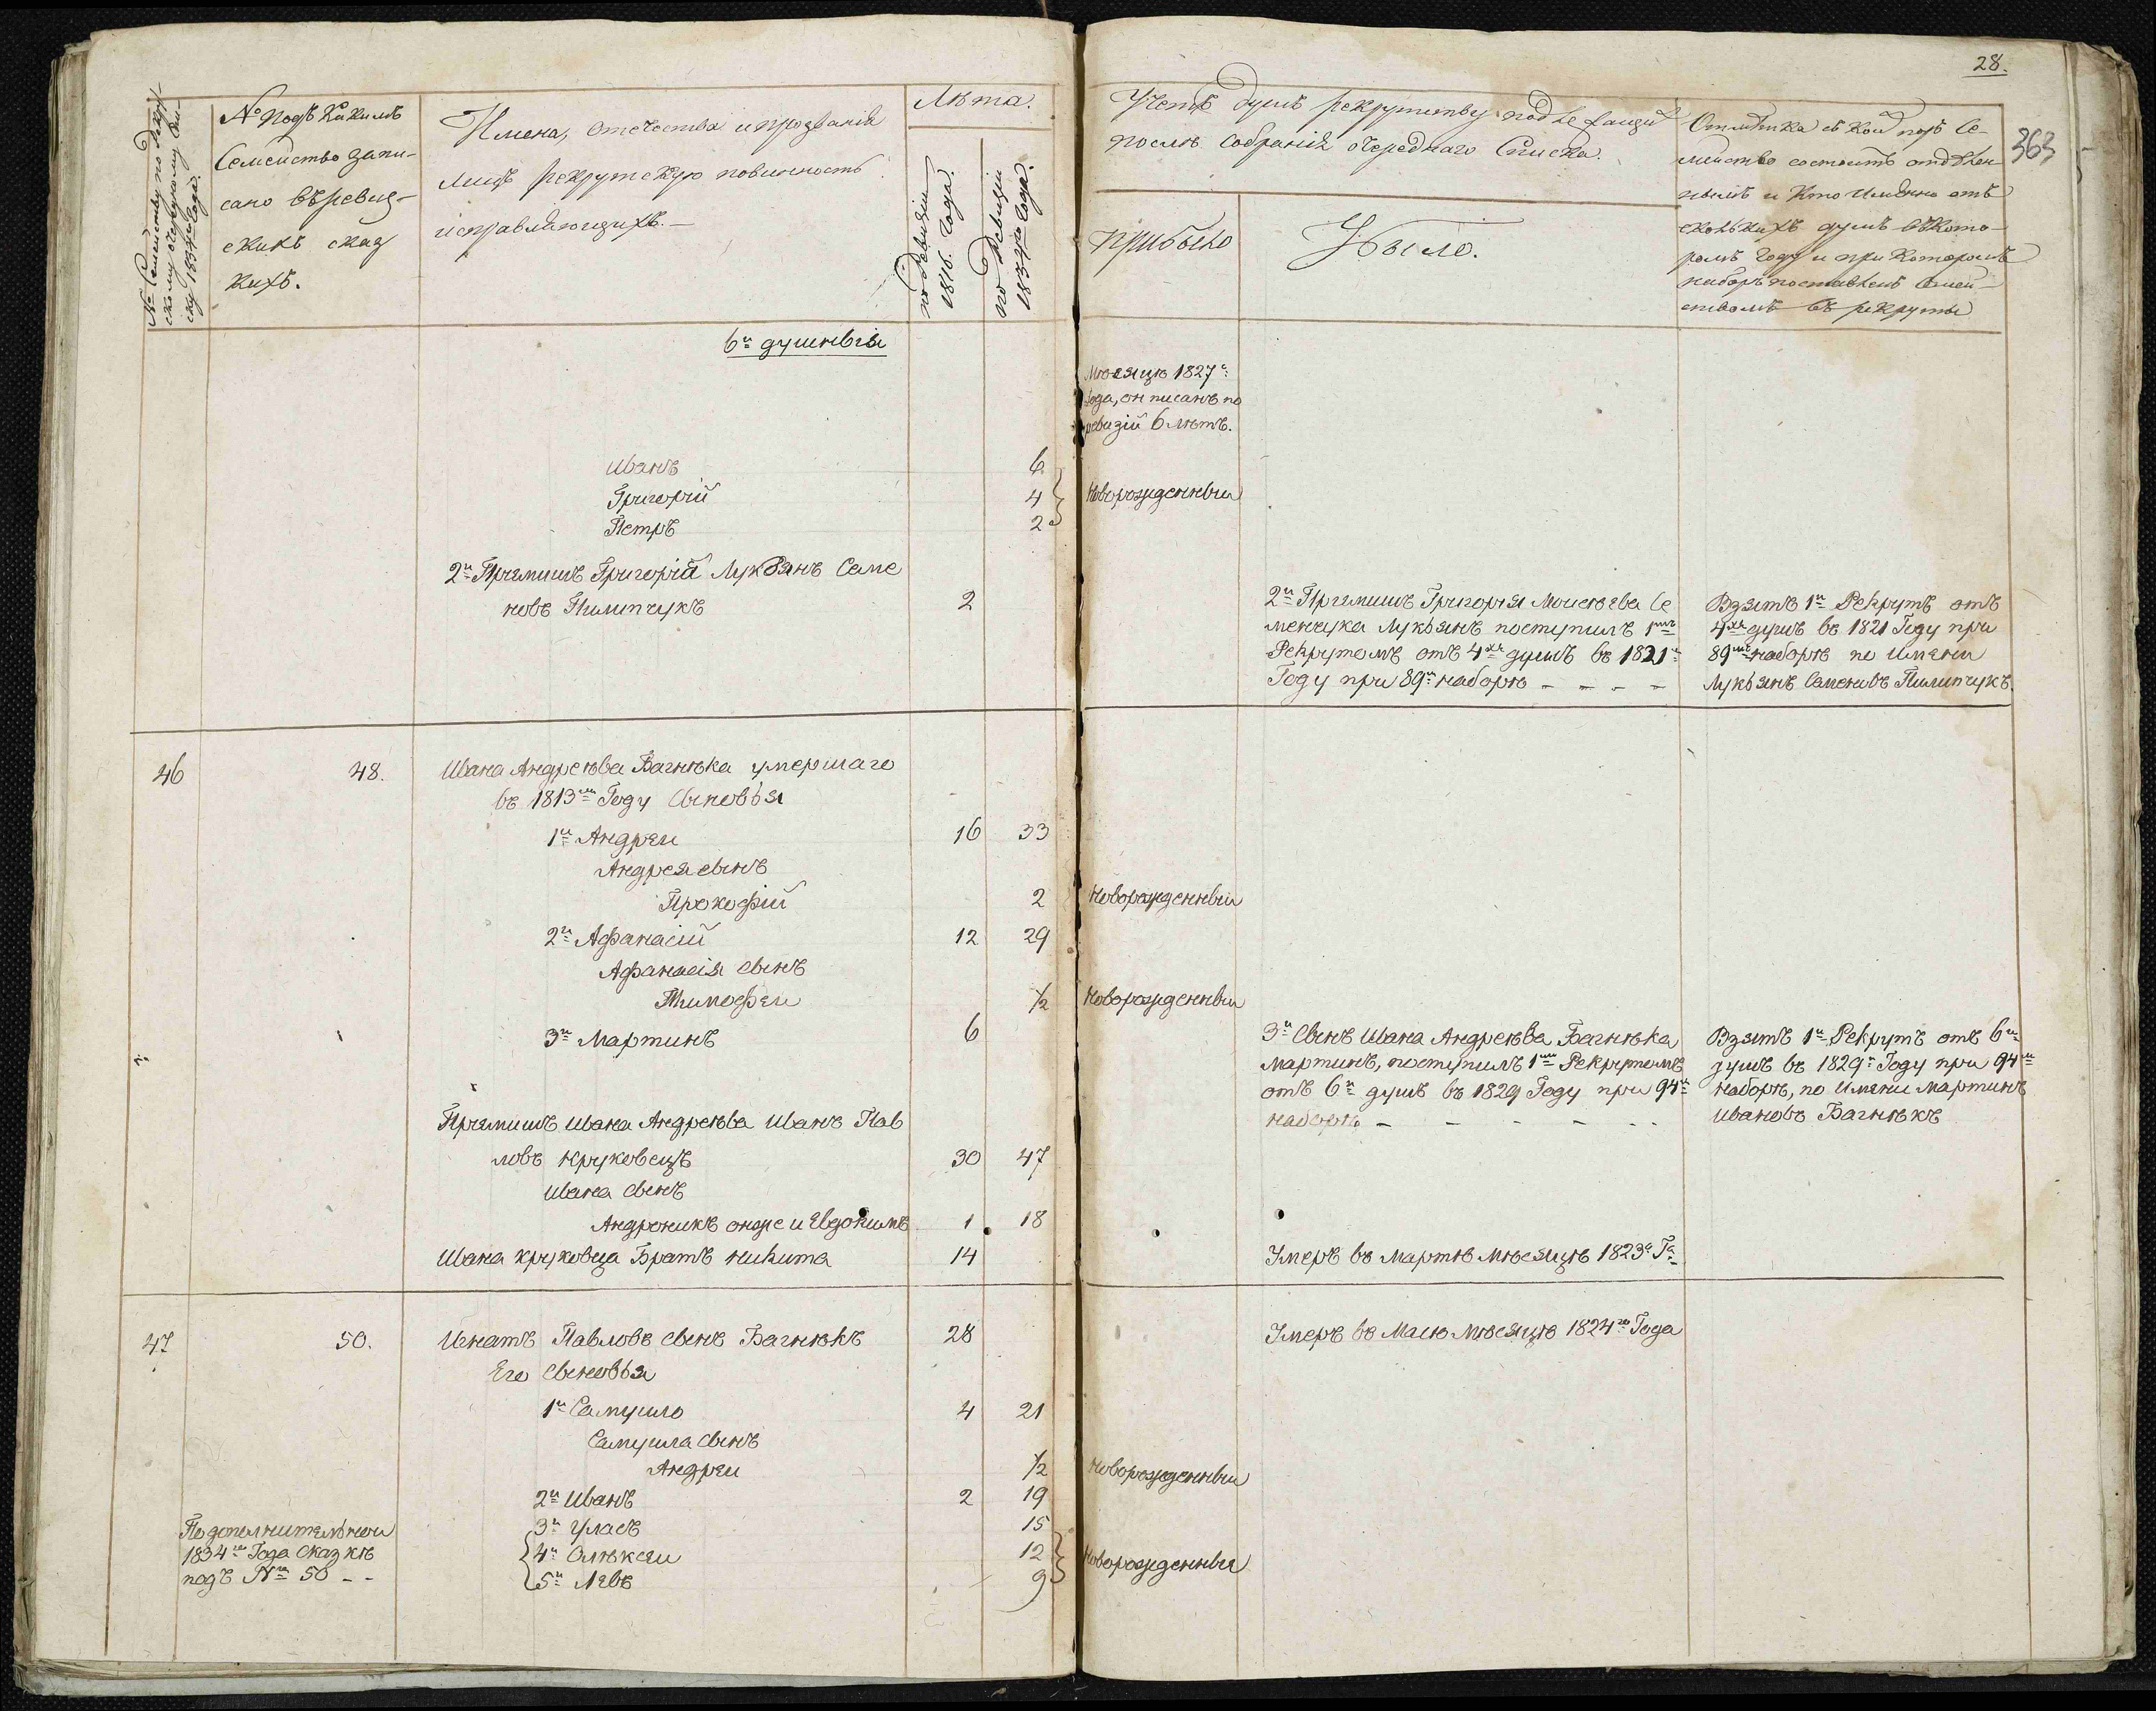 28.
363
№ Семейству по рекрут-
скому очередному спи-
ску 1834го Года.
№ подъ какимъ
Семейство запи-
сано въ ревиз-
скихъ сказ
кахъ.
Имена, отечества и прозванія
лицъ рекрутскую повинность
исправляющихъ. —
Лѣта.
по Ревизіи
1816. Года.
по Ревизіи
1834го Года.
Учетъ душъ рекрутству подлежащихъ
послѣ собранія очереднаго Списка.
Прибыло
Убыло.
Отмѣтка съ кой поръ Се-
мейство состоитъ отдѣлен
нымъ и кто имянно отъ
сколькихъ душъ въ кото-
ромъ Году и при которомъ
наборѣ поставленъ Семей-
ствомъ въ рекруты
6и душныя
Мѣсяцѣ 1827го
Года, он писанъ по
ревизіи 6 лѣтъ.
Иванъ 6
Григорій 4 Новорожденныи
Петръ 2
2й Пріемишъ Григорій Лукьянъ Семе
новъ Пилипчукъ 2
2й Пріемишъ Григорія Моисѣева Се
менчука Лукьянъ поступилъ 1мъ
Рекрутомъ отъ 4хъ душъ въ 1821м
Году при 89м наборѣ - - - -
Взятъ 1й Рекрутъ отъ
4хъ душъ въ 1821 Году при
89мъ наборѣ по имяни
Лукьянъ Семеновъ Пилипчукъ.
46 48. Ивана Андреѣва Багнюка умершаго
въ 1813м Году Сыновья
1й Андреи 16 33
Андрея сынъ
Прокофій 2 Новорожденныи
2й Афанасій 12 29
Афанасія сынъ
Тимофеи ½ Новорожденныи
3й Мартинъ 6
3й Сынъ Ивана Андреѣва Багнюка
Мартинъ, поступилъ 1мъ Рекрутомъ
отъ 6и душъ въ 1829 Году при 94м
наборѣ - - - - - -
Взятъ 1й Рекрутъ отъ 6и
душъ въ 1829м Году при 94м
наборѣ, по имяни Мартинъ
Ивановъ Багнюкъ
Пріемишъ Ивана Андреѣва Иванъ Пав
ловъ Круковецъ 30 47
Ивана сынъ
Андроникъ онже и Евдокимъ 1 18
Ивана Круковца Братъ Никита 14 Умеръ въ Мартѣ Мѣсяцѣ 1823го Га
47 50. Игнатъ Павловъ сынъ Багнюкъ 28 Умеръ въ Маѣ Мѣсяцѣ 1824го Года
Его сыновья
1й Самуило 4 21
Самуила сынъ
Андреи ½ Новорожденныи
2й Иванъ 2 19
3й Уласъ 15
4й Олѣксеи 12 Новорожденныя
5й Левъ 9
По дополнительнои
1834го Года сказкѣ
подъ №м 50 - -